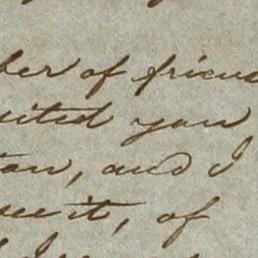 ber of friend
uited you
tan, and I
it, of